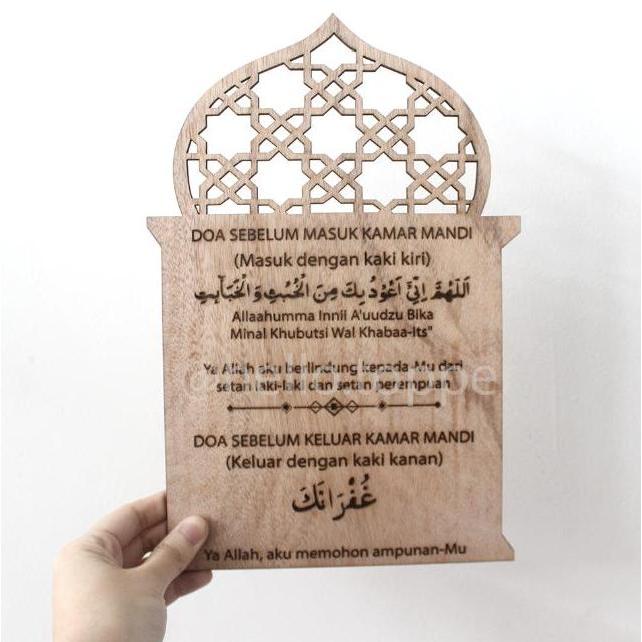 DOA SEBELUM MASUK KAMAR MANDI
(Masuk dengan kaki kiri)
اَللّٰهُمَّ اِنِّيْ اَعُوْذُ بِكَ مِنَ الْخُبُثِ وَ الْخَبَآئِثِ
Allaahumma Innii A'uudzu Bika
Minal Khubutsi Wal Khabaa-Its"
Ya Allah aku berlindung kepada-Mu dari
setan laki-laki dan setan perempuan
DOA SEBELUM KELUAR KAMAR MANDI
(Keluar dengan kaki kanan)
غُفْرَانَكَ
Ya Allah, aku memohon ampunan-Mu